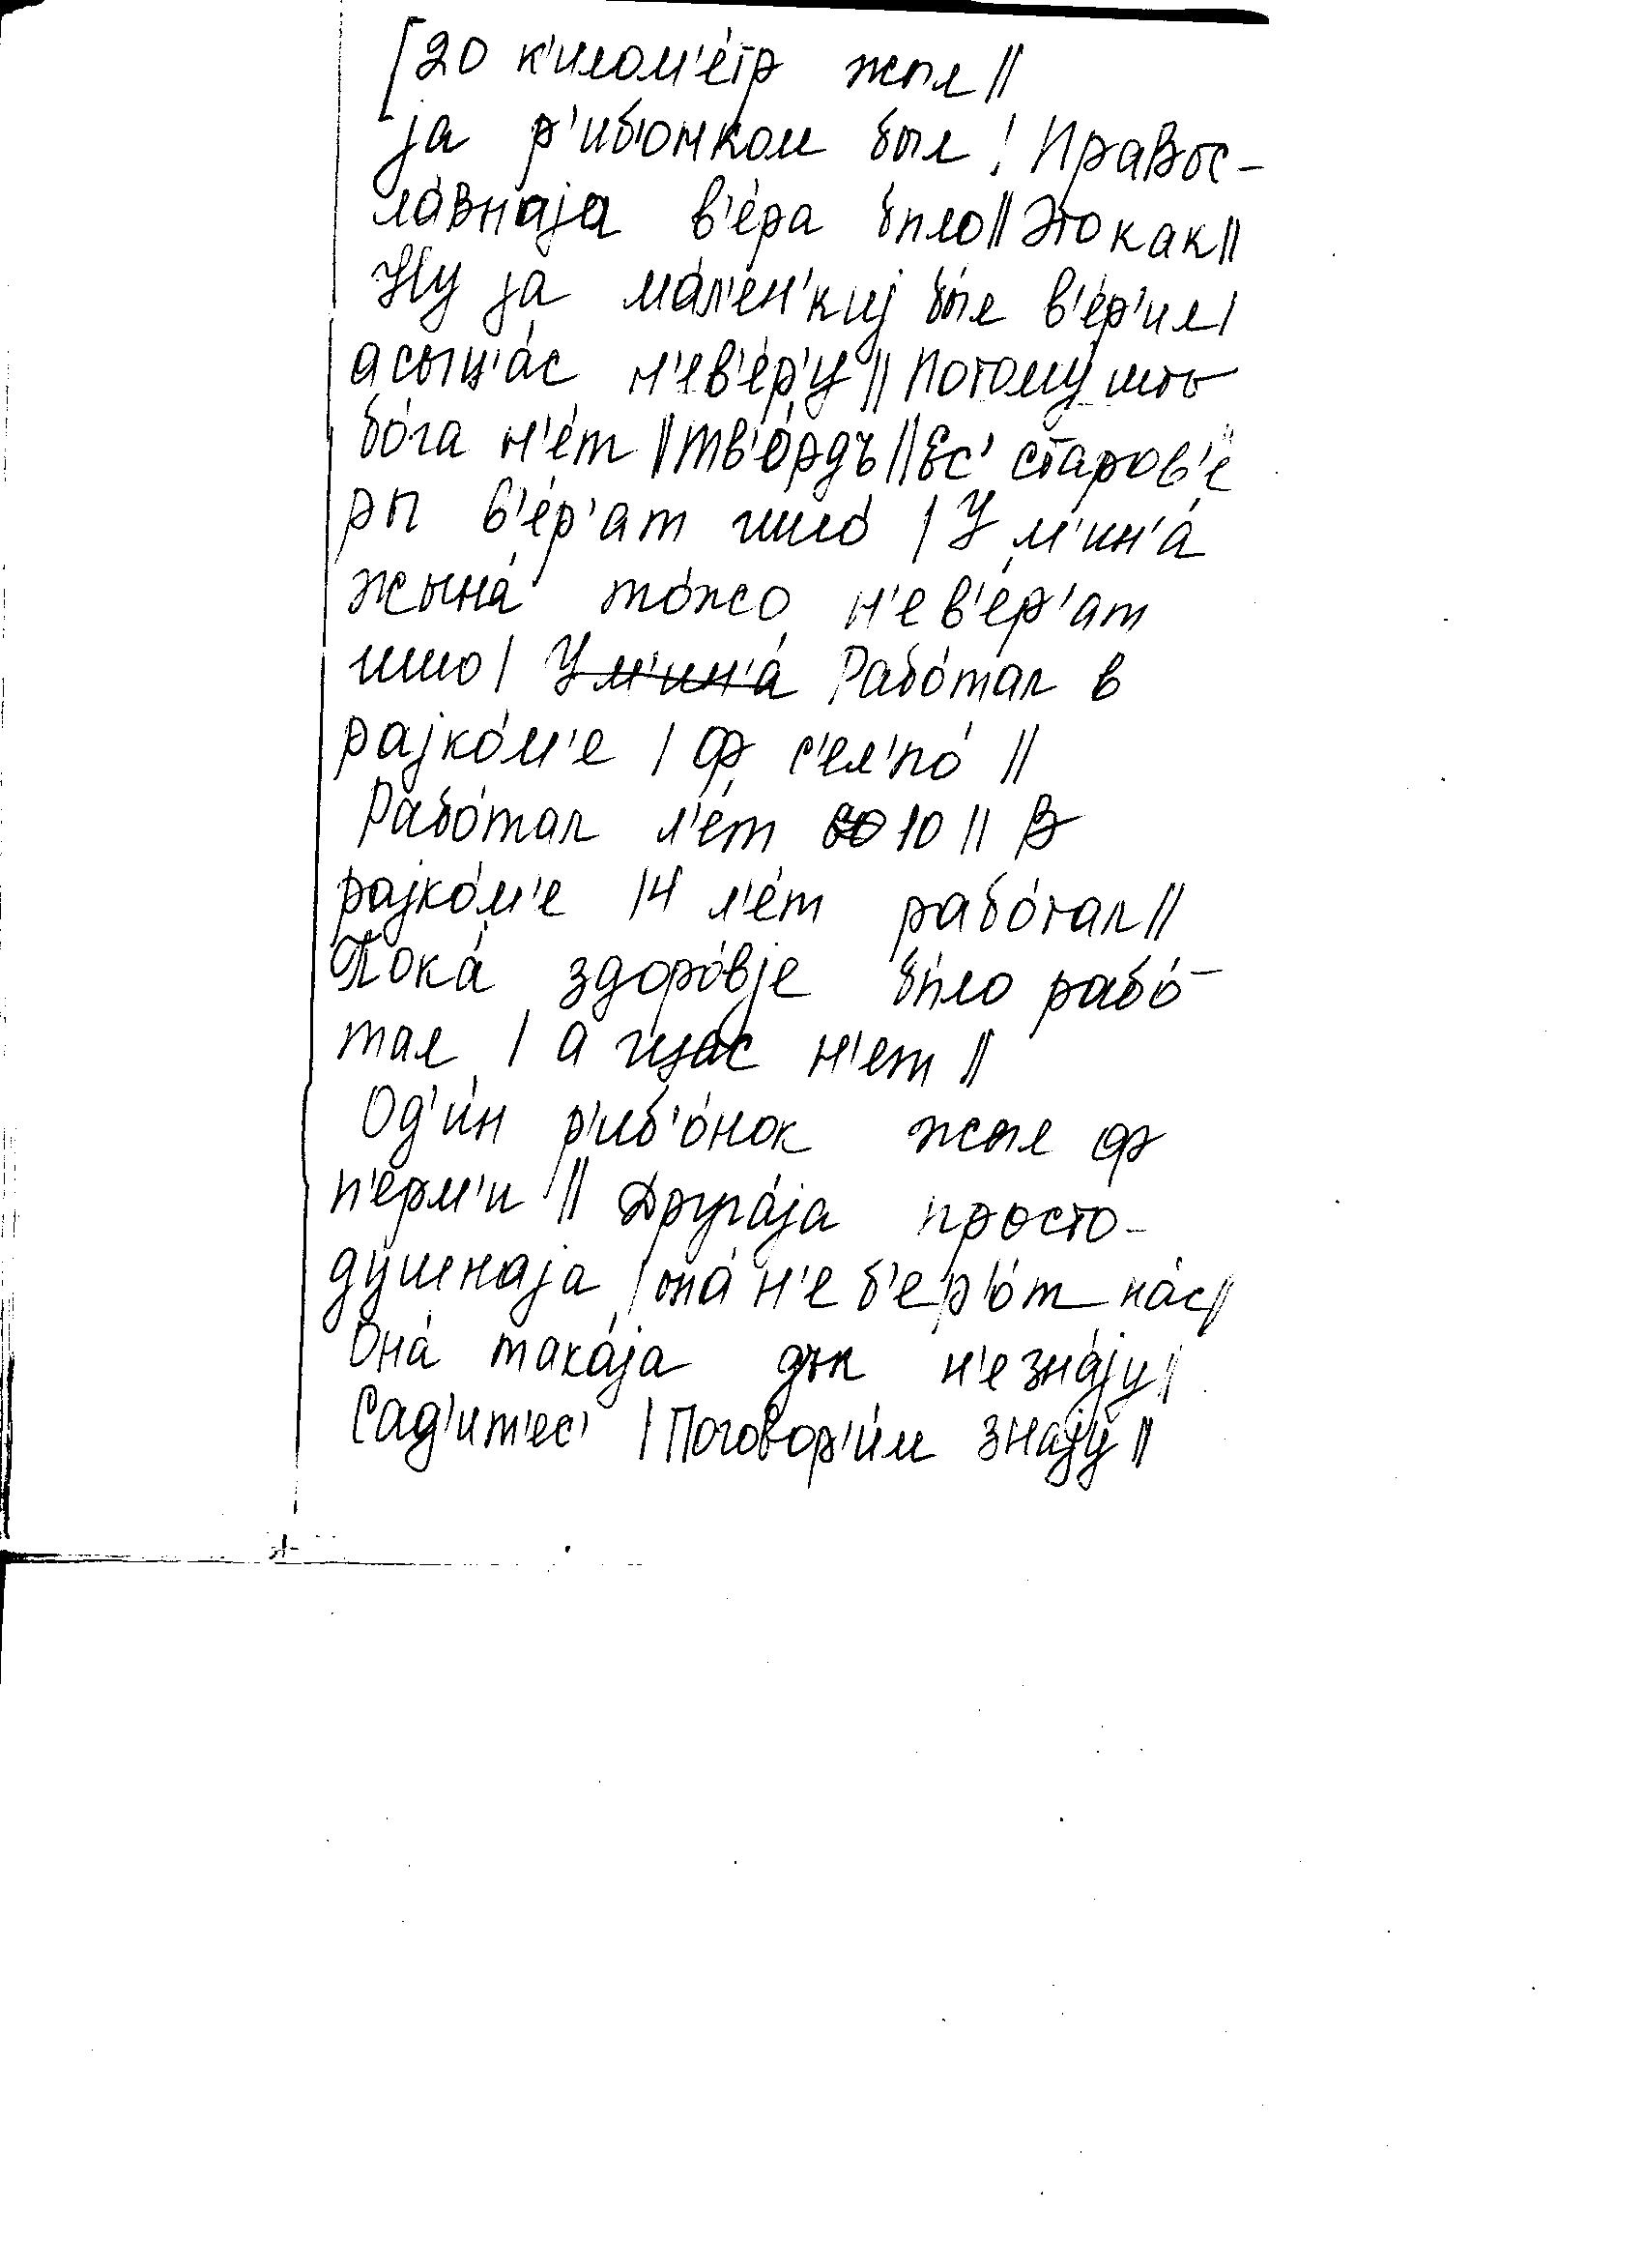 [20 к'илом'е́тр жыл ||
ја р'ибо́нком был / Правос-
ла́внаја в'е́ра бы́ло || Это как ||
Ну ја ма́л'ен'киј бы́л в'е́р'ил |
а сыц'а́с н'ев'е́р'у || Потому́ што
бо́га н'е́т || Тв'о́рдъ || Ес' старов'е́
ры в'е́р'ат ишо́ | У м'ин'а́
жына́ то́жо н'е в'е́р'ат
ишо | У м'ин'а́ Рабо́тал в
рајко́м'е | ф с'ел'по́ ||
Рабо́тал л'е́т 10 || В
рајко́м'е 14 л'е́т рабо́тал ||
Пока́ здоро́вје бы́ло рабо́-
тал | а щас н'ет ||
Од'и́н р'иб'о́нок жыл ф
п'ерм'и || Друга́ја просто-
ду́шнаја | она́ н'е б'ер'о́т на́с ||
Она́ така́ја дък н'е зна́ју |
Сад'ит'ес' | Поговор'и́м знају́ ||